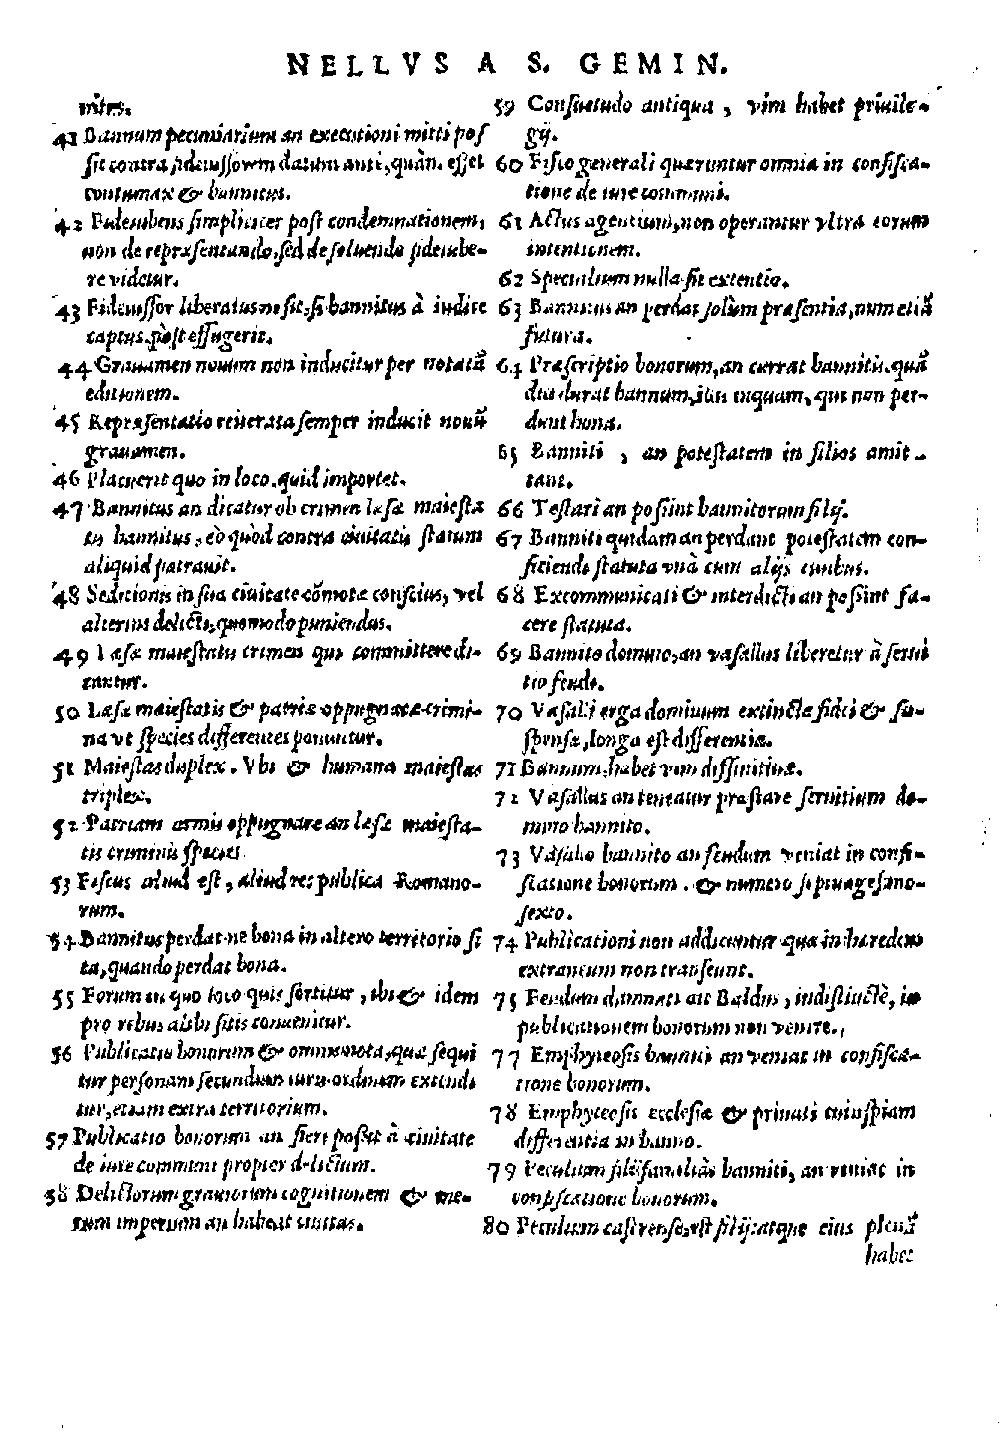 NELLVS A S. GEMIN.
nites.
41 Bannum pecuniarium an executioni mitti pos
sit contra fideiussorem datum ante, quàm esset
contumax & bannitus.
42 Fideiubens simpliciter post condemnationem,
non de repræsentando, sed de soluendo fideiube-
re videtur.
43 Fideiussor liberatus ne sit, si bannitus à iudice
captus, pòst effugerit.
44 Grauamen nouum non inducitur per notatā
editionem.
45 Repræsentatio reiterata semper inducit nouū
grauamen.
46 Placuerit quo in loco, quid importet.
47 Bannitus an dicatur ob crimen læsæ maiesta
tis bannitus, eò quòd contra ciuitatis statum
aliquid patrauit.
48 Seditionis in sua ciuitate cōmotæ conscius, vel
alterius delicti, quomodo puniendus.
49 Læsæ maiestatis crimen qui committere di-
cantur.
50 Læsæ maiestatis & patriæ oppugnatæ crimi-
na vt species differentes ponuntur.
51 Maiestas duplex. Vbi & humana maiestas
triplex.
52 Patriam armis oppugnare an læsæ maiesta-
tis criminis species
53 Fiscus aliud est, aliud respublica Romano-
rum.
54 Bannitus perdat-ne bona in altero territorio si
ta, quando perdat bona.
55 Forum in quo loco quis sortitur, ibi & idem
pro rebus alibi sitis conuenitur.
56 Publicatio bonorum & omnis nota, quæ sequi
tur personam secundum iuris ordinem extendi
tur, etiam extra territorium.
57 Publicatio bonorum an fieri possit à ciuitate
de iure communi propter delictum.
58 Delictorum grauiorum cognitionem & me-
rum imperium an habeat ciuitas.
59 Consuetudo antiqua, vim habet priuile-
gij.
60 Fisco generali quæruntur omnia in confisca-
tione de iure communi.
61 Actus agentium, non operantur vltra eorum
intentionem.
62 Specialium nulla sit extentio.
63 Bannitus an perdat solum præsentia, num etiā
futura.
64 Præscriptio bonorum, an currat bannitis, quā
diu durat bannum, illis inquam, qui non per-
dunt bona.
65 Banniti, an potestatem in filios amit-
tant.
66 Testari an possint bannitorum filij.
67 Banniti quidam an perdant potestatem con-
ficiendi statuta vnà cum alijs ciuibus.
68 Excommunicati & interdicti an possint fa-
cere statuta.
69 Bannito domino, an vasallus liberetur à serui
tio feudi.
70 Vasalli erga dominum extinctæ fidei & su-
spensæ, longa est differentia.
71 Bannum, habet vim diffinitiuæ.
72 Vasallus an teneatur præstare seruitium do-
mino bannito.
73 Vasallo bannito an feudum veniat in confi-
scatione bonorum. & numero septuagesimo-
sexto.
74 Publicationi non addicuntur quæ in hæredem
extraneum non transeunt.
75 Feudum damnati an Baldus, indistinctè, in
publicationem bonorum non venire.
77 Emphyteosis banniti an veniat in confisca-
tione bonorum.
78 Emphyteosis ecclesiæ & priuati cuiuspiam
differentia in banno.
79 Peculium filijfamiliâs banniti, an veniat in
confiscatione bonorum.
80 Peculium castrense, est filij: atque eius plenū
habet